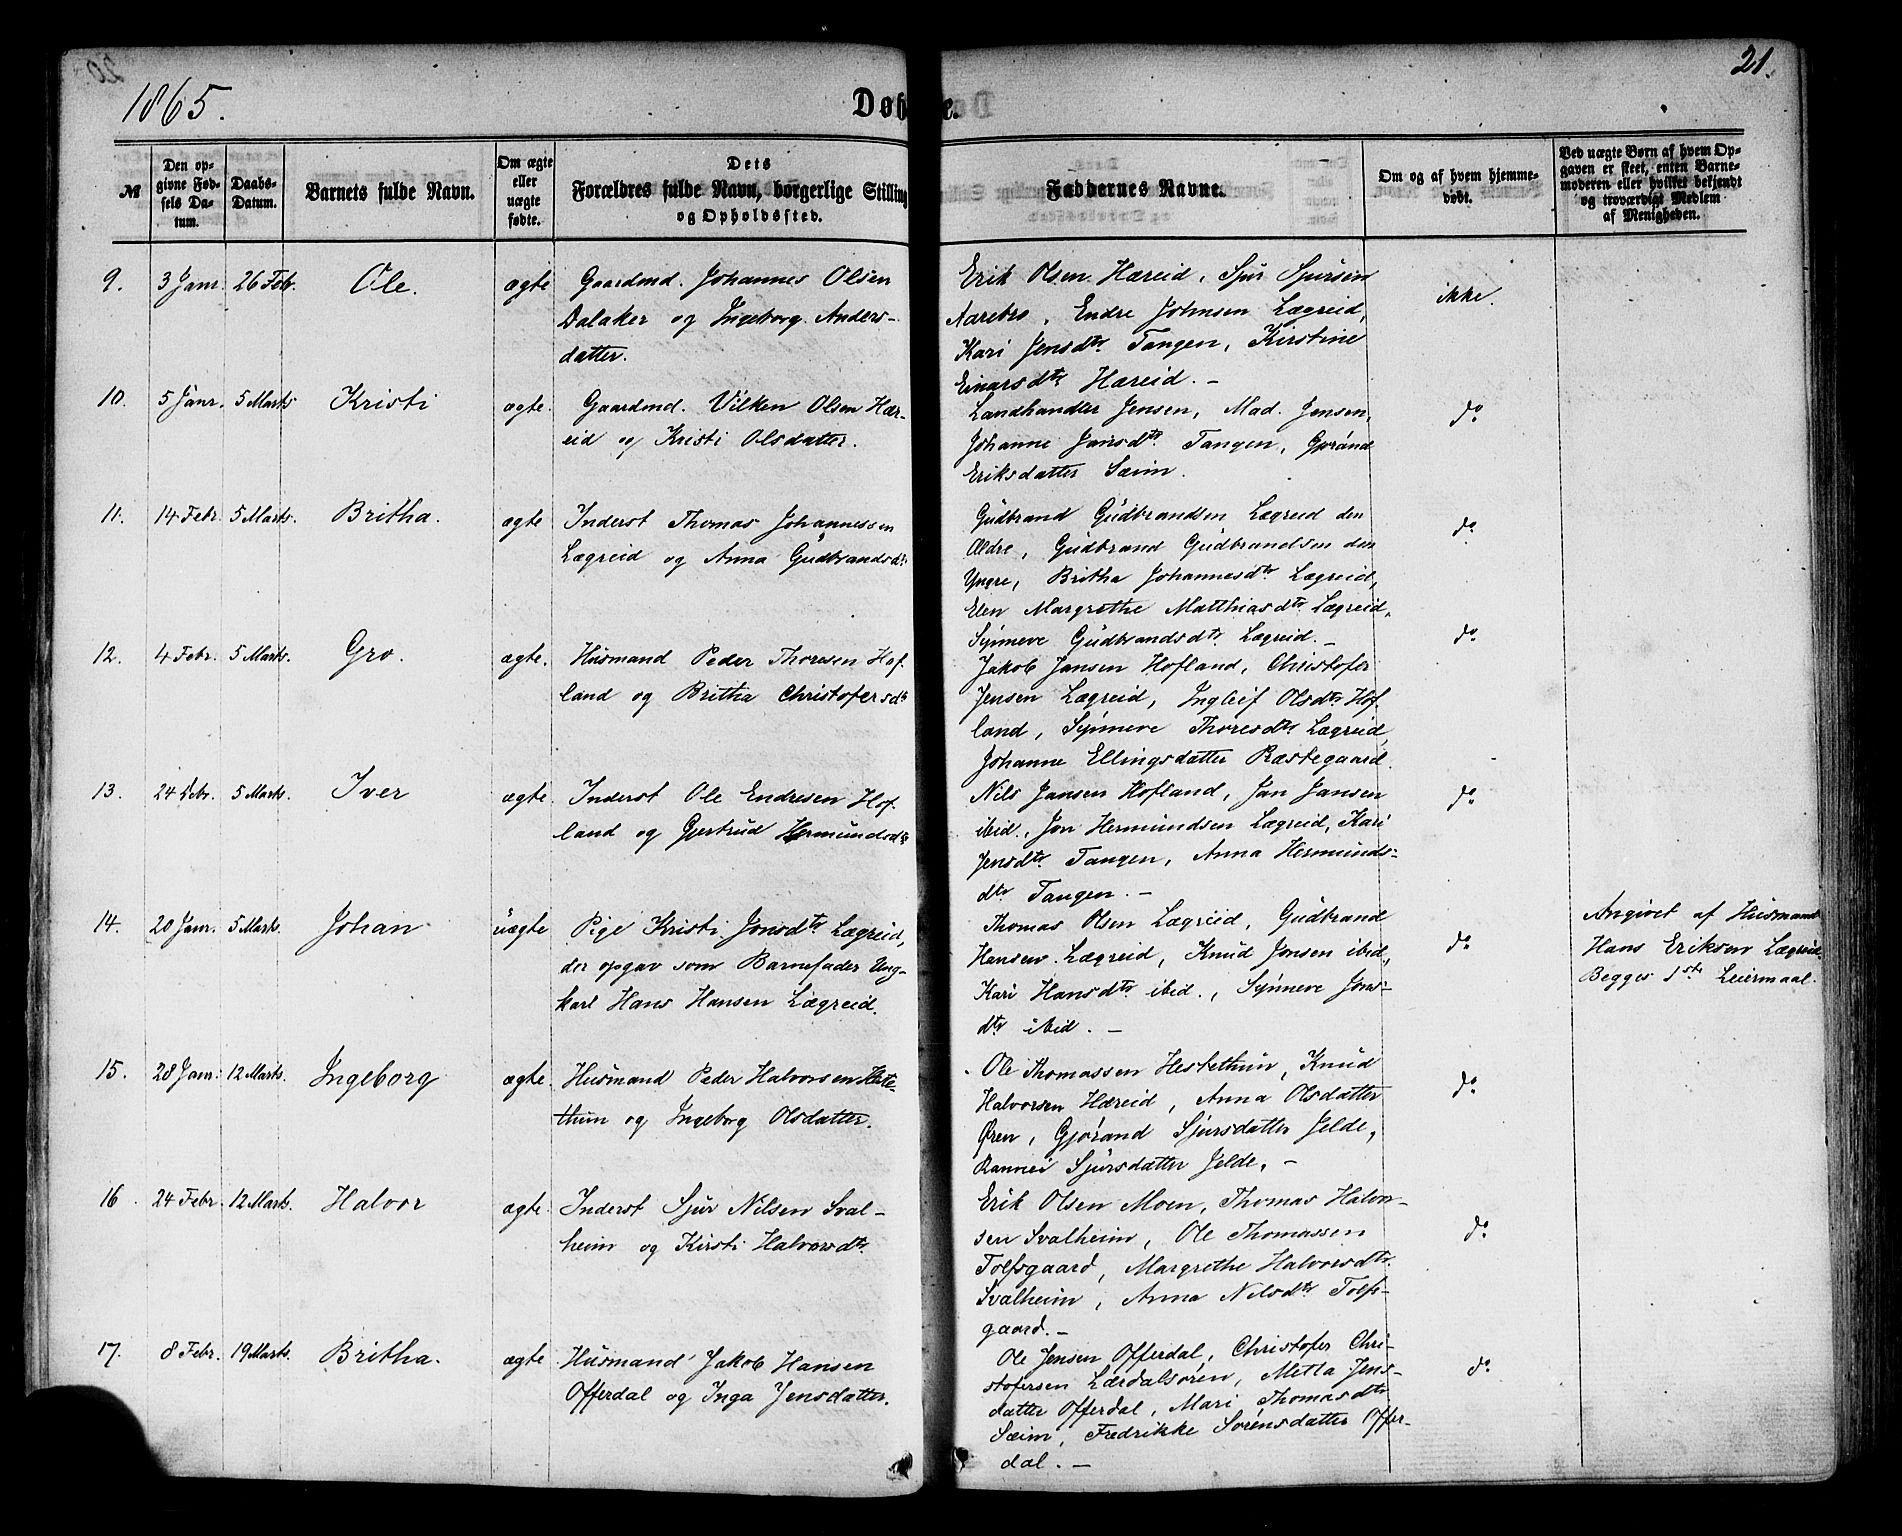 1865.
Døbte.
21.
№
Den opgivne Fødsels Datum.
Daabs-Datum.
Barnets fulde Navn.
Om ægte eller uægte fødte.
Dets Forældres fulde Navn, borgerlige Stilling og Opholdssted.
Faddernes Navne.
Om og af hvem hjemmedøbt.
Ved uægte Børn af hvem Opgaven er skeet, enten Barnemoderen eller hvilket bekjendt og troværdigt Medlem af Menigheden.
9. 3 Janr. 26 Feb. Ole. ægte Gaardmd. Johannes Olsen
Dalaker og Ingeborg Anders-
datter.
Erik Olsen Hæreid, Sjur Sjursen
Aarebro, Endre Johnsen Lægreid,
Kari Jensdtr Tangen, Kirstine
Einarsdtr Hæreid. –
ikke.
10. 5 Janr. 5 Marts Kristi ægte. Gaardmd. Vilken Olsen Hær-
eid og Kristi Olsdatter.
Landhandler Jensen, Mad. Jensen,
Johanne Jansdtr Tangen, Gjørand
Eriksdatter Sæim.
do
11. 14 Febr. 5 Marts. Britha. ægte Inderst Thomas Johannessen
Lægreid og Anna Gudbrandsdr
Gudbrand Gudbrandsen Lægreid den
Ældre, Gudbrand Gudbrandsen den
Yngre, Britha Johannesdtr Lægreid,
Elen Margrethe Matthiasdtr Lægreid,
Synneve Gudbrandsdtr Lægreid. –
do
12. 4 Febr. 5 Marts. Gro. ægte. Husmand Peder Thoresen Hof-
land og Britha Christofersdtr
Jakob Jansen Hofland, Christofer
Jensen Lægreid, Ingleif Olsdtr Hof-
land, Synneve Thoresdtr Lægreid,
Johanne Ellingsdatter Ræstegaard.
do
13. 24 Febr. 5 Marts. Iver ægte. Inderst Ole Endresen Hof-
land og Gjertrud Hermundsdtr
Nils Jansen Hofland, Jan Jansen
ibid., Jon Hermundsen Lægreid, Kari
Jensdtr Tangen, Anna Hermunds-
dtr Tangen. –
do
14. 20 Janr. 5 Marts. Johan uægte Pige Kristi Jonsdtr Lægreid,
der opgav som Barnefader Ung-
karl Hans Hansen Lægreid.
Thomas Olsen Lægreid, Gudbrand
Hansen Lægreid, Knud Jonsen ibid.,
Kari Hansdtr ibid., Synneve Jons-
dtr ibid. –
do
Angivet af Husmand
Hans Eriksen Lægreid.
Begges 1ste Leiermaal.
15. 28 Janr. 12 Marts. Ingeborg ægte. Husmand Peder Halvorsen Heste-
thun og Ingeborg Olsdatter.
Ole Thomassen Hestethun, Knud
Halvorsen Hæreid, Anna Olsdatter
Øren, Gjørand Sjursdatter Jelde,
Rannei Sjursdatter Jelde. –
do
16. 24 Febr. 12 Marts. Halvor ægte. Inderst Sjur Nilsen Sval-
heim og Kirsti Halvorsdtr
Erik Olsen Moen, Thomas Halvor-
sen Svalheim, Ole Thomassen
Tolfsgaard, Margrethe Halvorsdtr
Svalheim, Anna Nilsdtr Tolfs-
gaard. –
do
17. 8 Febr. 19 Marts. Britha. ægte. Husmand Jakob Hansen
Offerdal og Inga Jensdatter.
Ole Jensen Offerdal, Christofer Chri-
stofersen Lærdalsøren, Metta Jens-
datter Offerdal, Mari Thomasdtr
Sæim, Fredrikke Sørensdatter Offer-
dal. –
do